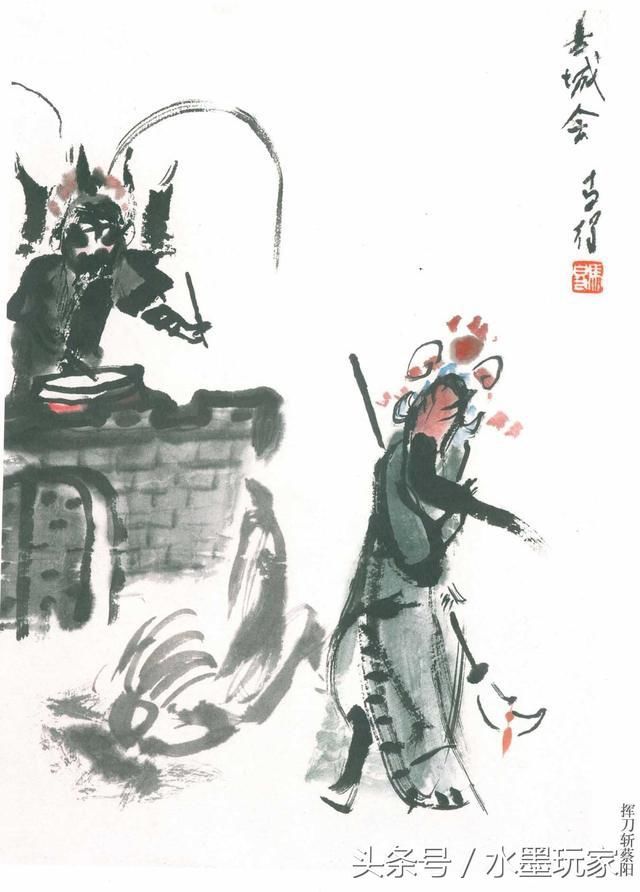 古城会
挥刀斩蔡阳
头条号/水墨玩家